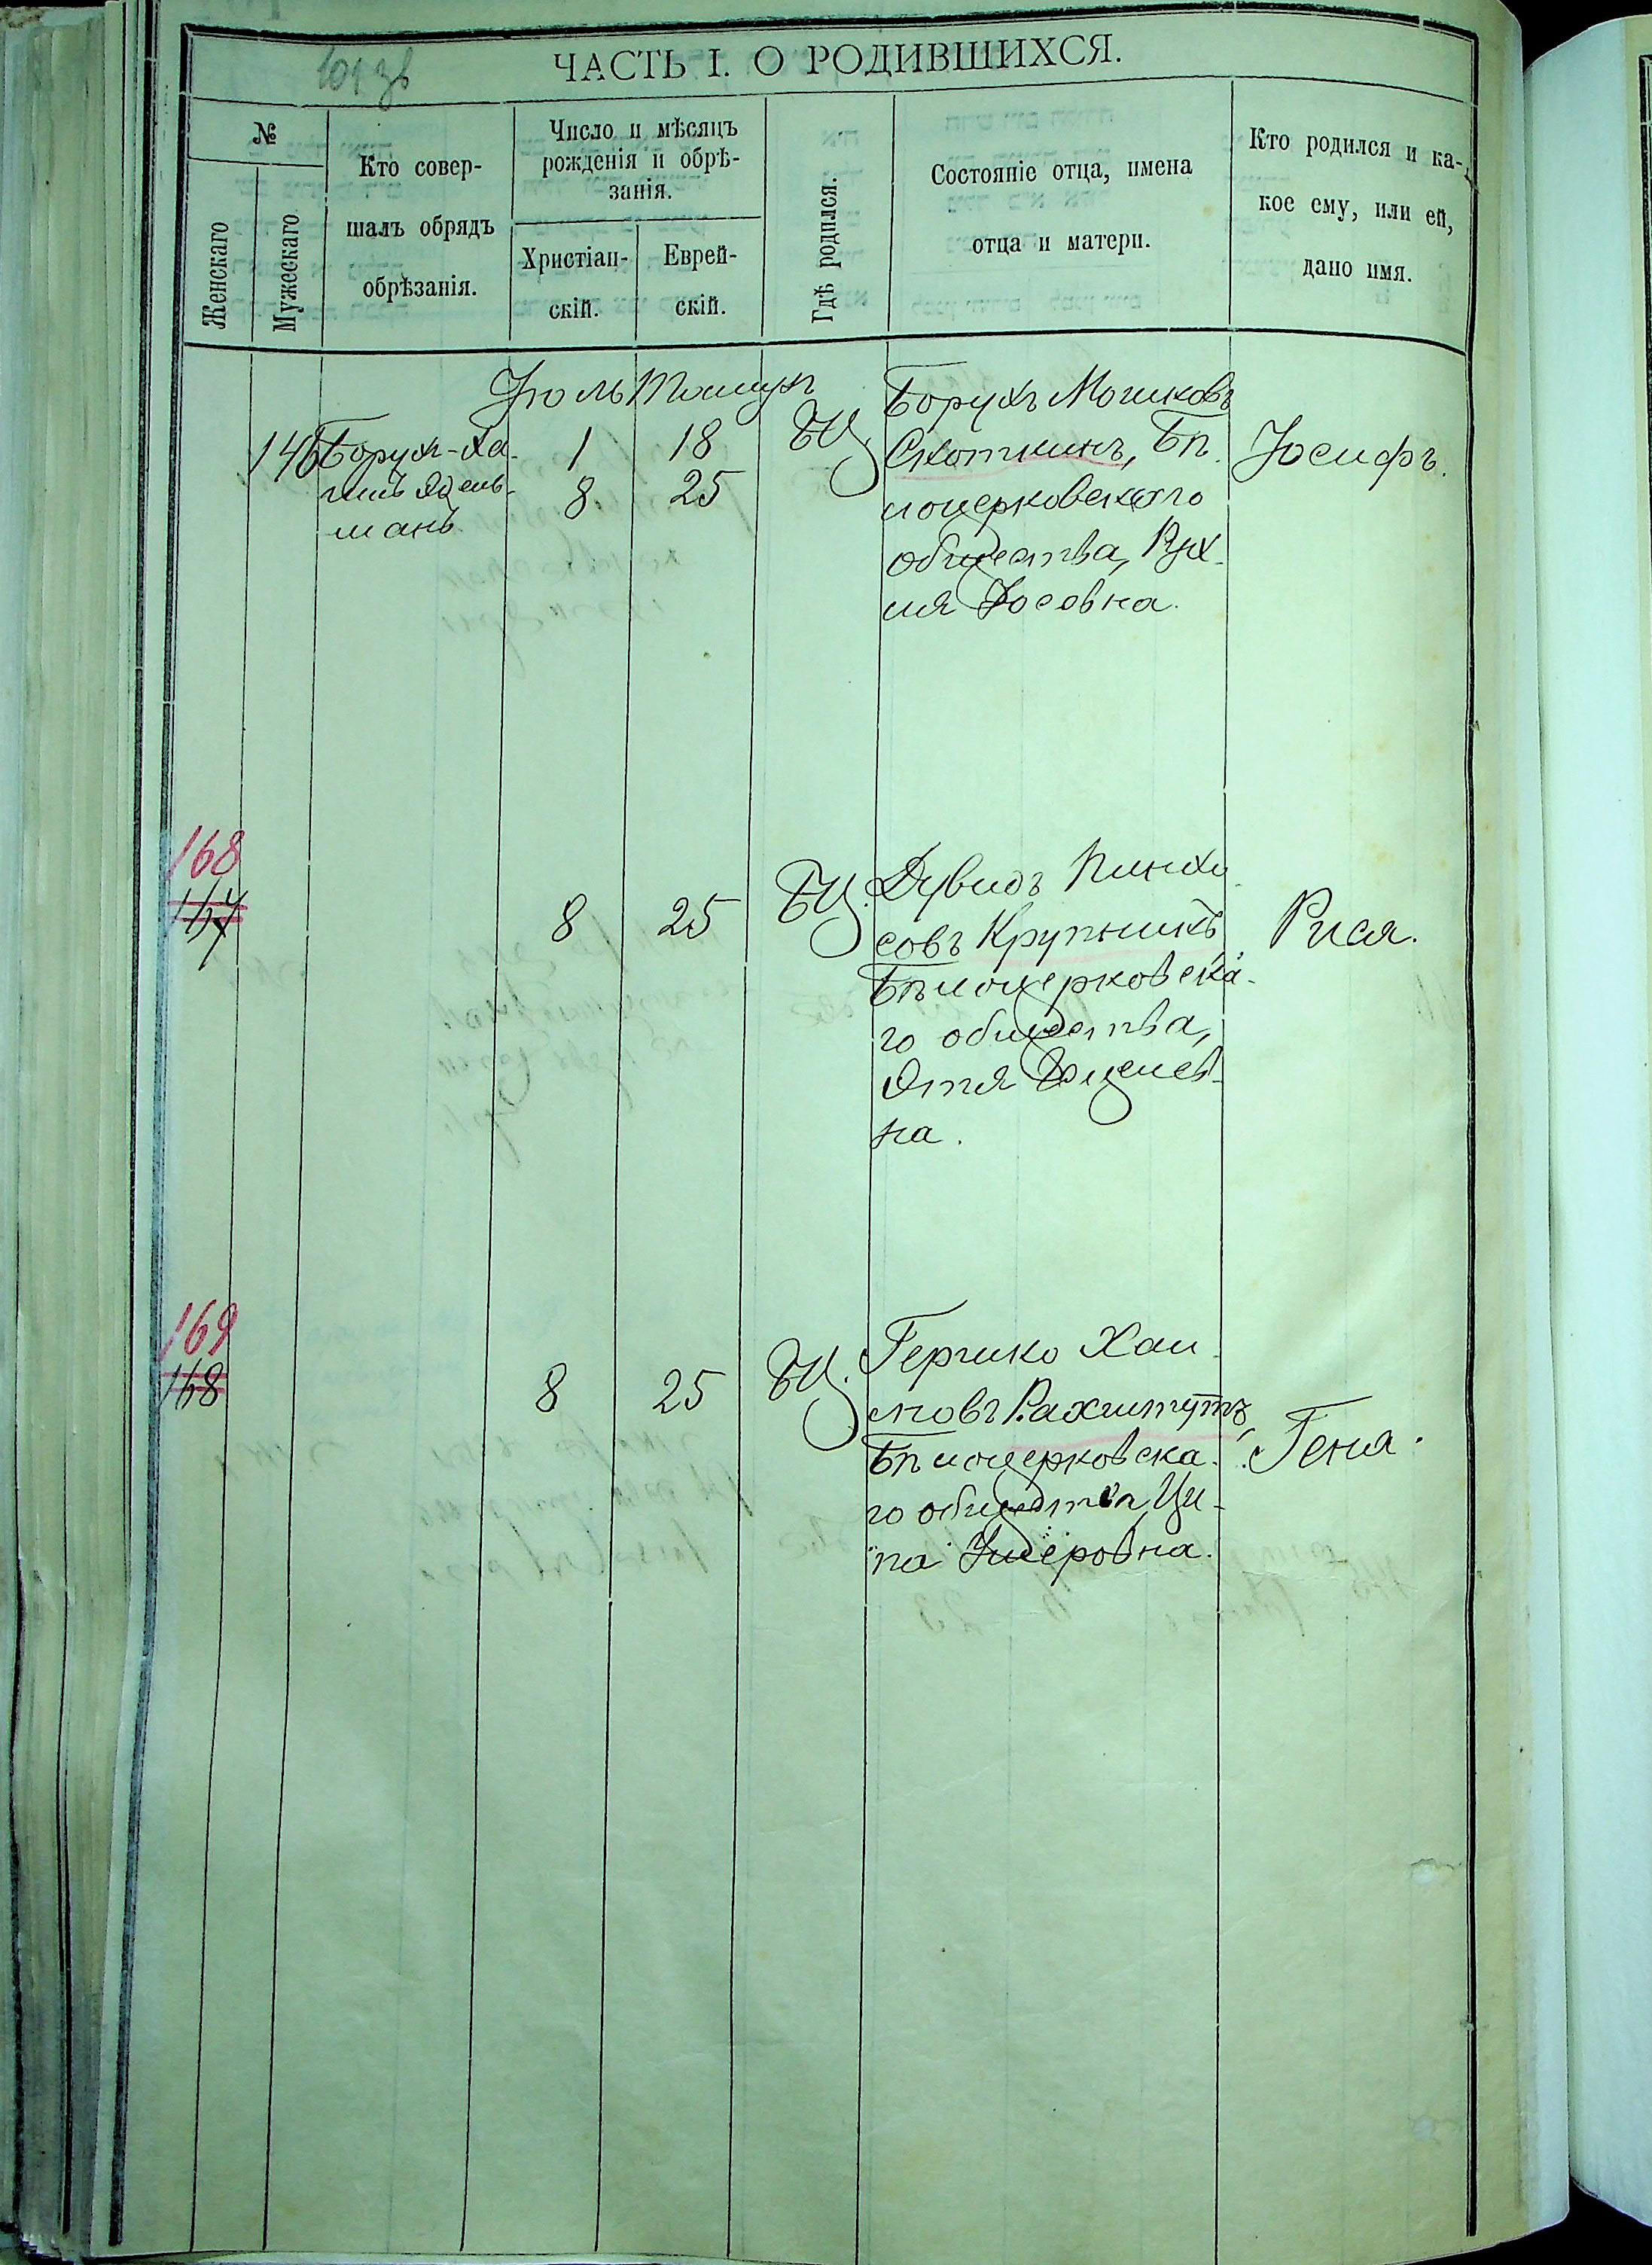 101 зв
ЧАСТЬ I. О РОДИВШИХСЯ.
№
Женскаго
Мужескаго
Кто совер-
шалъ обрядъ
обрѣзанія.
Число и мѣсяцъ
рожденія и обрѣ-
занія.
Христіан-
скій.
Еврей-
скій.
Гдѣ родился.
Состояніе отца, имена
отца и матери.
Кто родился и ка-
кое ему, или ей,
дано имя.
Іюль Тамузъ
146
Борух-Ха-
имъ Эдель-
манъ
1 18
8 25
БЦ.
Борухъ Мошковъ
Скоткинъ, Бѣ-
лоцерковскаго
общества, Рух-
ля Іосовна.
Іосифъ.
168
167
8 25
БЦ.
Дувидъ Пинхо-
совъ Крупникъ
Бѣлоцерковска-
го общества,
Этя
на.
Рися.
169
168
8 25
БЦ.
Гершко Хаи-
мовъ
Бѣлоцерковска-
го общества Ци-
па
Геня.